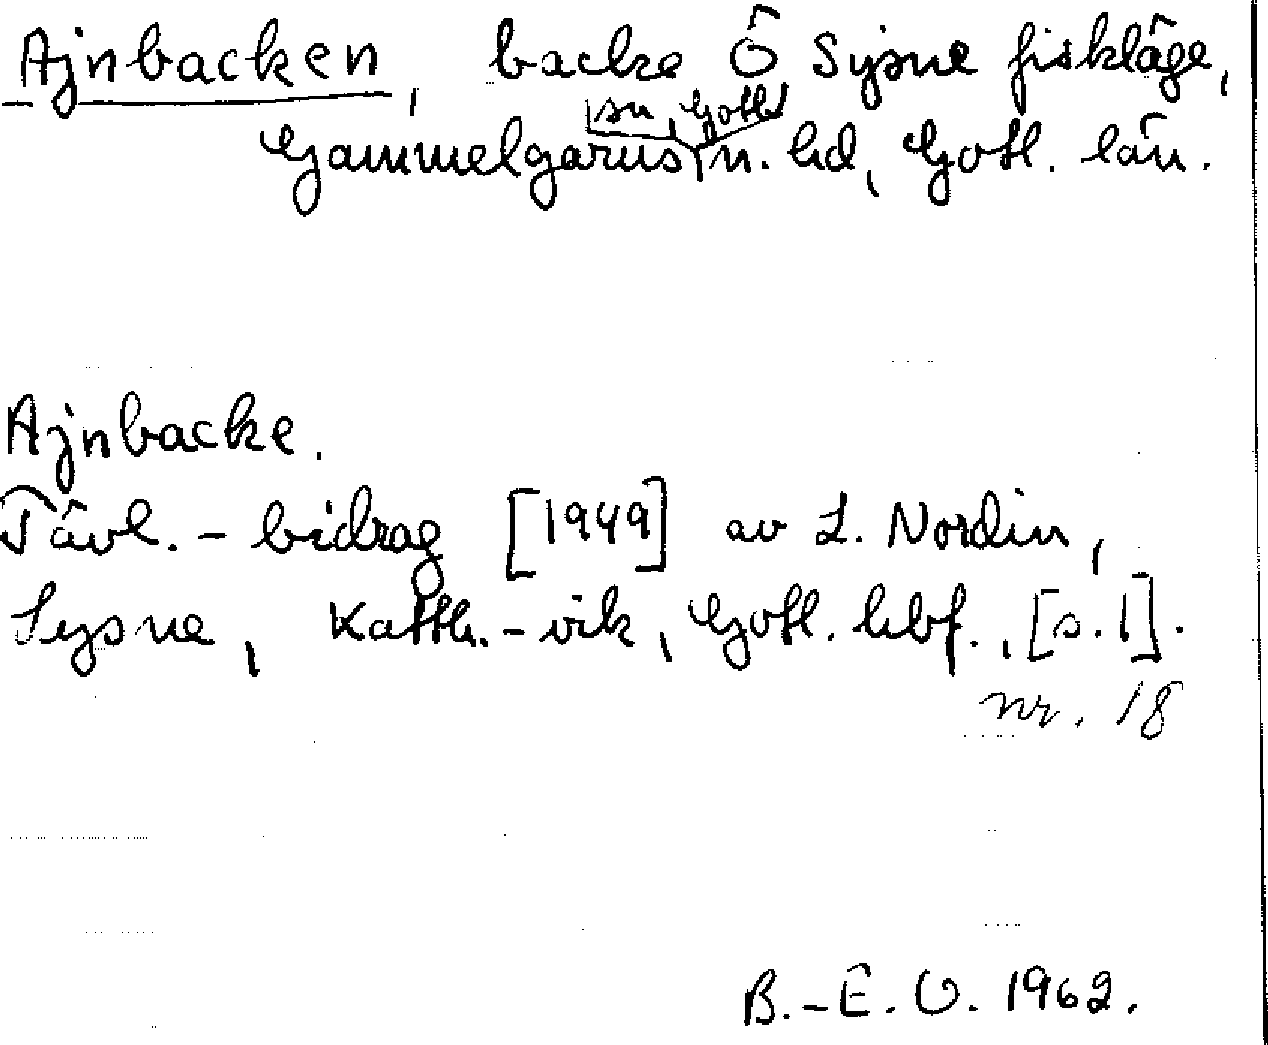 Ajnbacken, backe Ö Sysne fiskläge,
sn, Gotl.
Gammelgarns n. hd, Gotl. län.
Ajnbacke.
Tävl.-bidrag [1949] av L. Nordin,
Sysne, Katth.-vik, Gotl. hbf., [s.1].
nr. 18
B.-E. O. 1962.